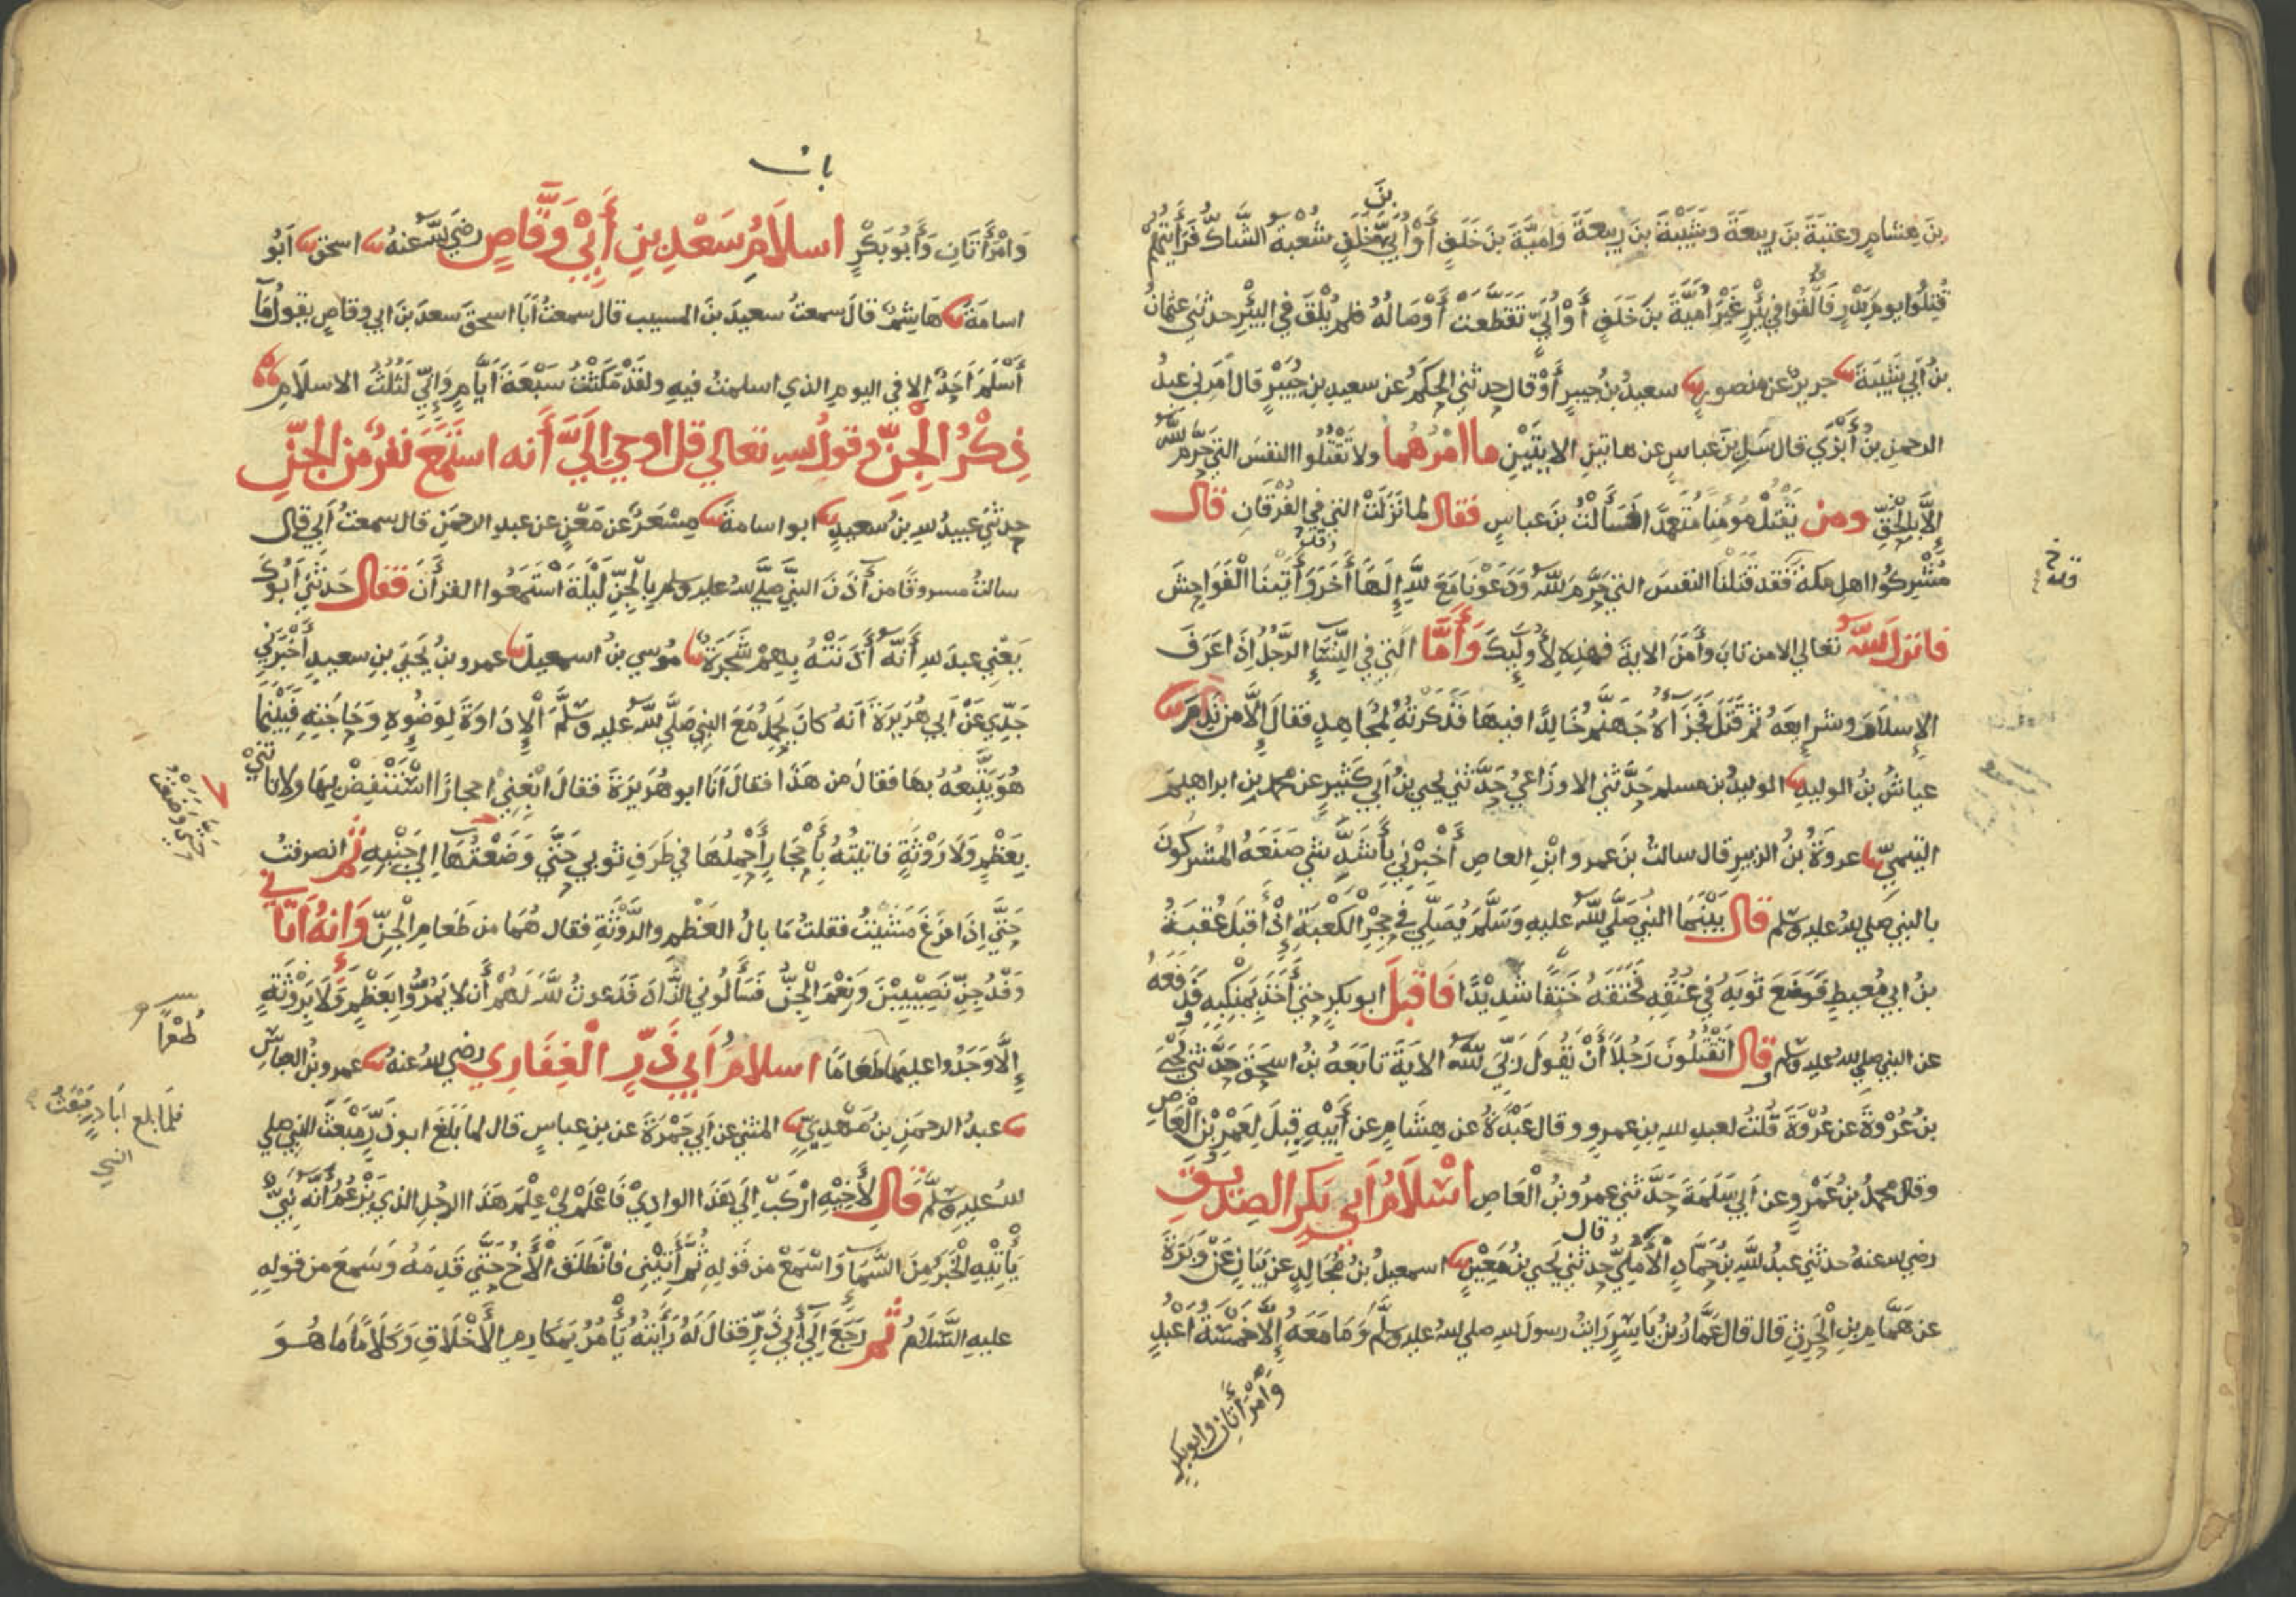 بن هشامٍ وعتبة بن ربيعة وشيبة بن ربيعة وامية بن خلفٍ أو أبيَّ خلفٍ شعبة الشاك فرأيتهم
بن
قتلوا يوم بدر فألقوا في بئر غير أمية بن خلف أو أبيٍّ تقطعت أوصاله فلم يلق في البئر حدثني عثمان
بن أبي شيبة جرير عن منصور سعيد بن جبير أو قال حدثني الحكم عن سعيد بن جبير قال أمرني عبد
الرحمن بن أبزي قال سل بن عباس عن هاتين الايتين ما امرهما ولا تقتلوا النفس التي حرم الله
إلا بالحق ومن يقتل مومنا متعمدا فسألت بن عباس فقال لما نزلت التي في الفرقان قال
مشركوا اهل مكة فقد قتلنا النفس التي حرم الله ودعونا مع الله إلها أخر وأتينا الفواحش
فانزل الله تعالي الا من تاب وأمن الاية فهذه لأولئك وأما التي في النساء الرجل اذا عرف
الإسلام وشرايعه ثم قتل فجزاؤه جهنم خالدا فيها فذكرته لمجاهد فقال إلا من ندم
عياش بن الوليد الوليد بن مسلم حدثني الاوزاعي حدثني يحيي بن أبي كثير عن محمد بن ابراهيم
التيمي عروة بن الزبير قال سالت بن عمرو ابن العاص أخبرني بأشد شي صنعه المشركون
بالنبي صلي الله عليه وسلم قال بينما النبي صلي الله عليه وسلم يصلي في حجر الكعبة إذ أقبل عقبة
بن ابي معيط فوضع ثوبه في عنقه فخنقه خنقا شديدا فاقبل ابو بكر حتي أخذ بمنكبه ودفعه
عن النبي صلي الله عليه وسلم وقال أتقتلون رجلا أن يقول ربي الله الاية تابعه بن اسحق حدثني يحيي
بن عروة عن عروة قلت لعبد الله بن عمرو وقال عبدة عن هشام عن أبيه قيل لعمرو بن العاص
وقال محمد بن عمرو عن ابي سلمة حدثني عمرو بن العاص اسلام ابي بكر الصديق
رضي الله عنه حدثني عبد الله بن حماد الأملي قال حدثني يحيي بن معين اسمعيل بن مجالد عن بيان عن وبرة
عن همام بن الحرث قال قال عمار بن ياسر رايت رسول الله صلي الله عليه وسلم وما معه إلا خمسة أعبد
وامرأتان وابو بكر
باب
وامرأتان وأبو بكر اسلام سعد بن أبي وقاص رضي الله عنه اسحق ابو
اسامة هاشم قال سمعت سعيد بن المسيب قال سمعت أبا اسحق سعد بن ابي وقاص يقول ما
أسلم احد الا في اليوم الذي اسلمت فيه ولقد مكثت سبعة أيام وإني لثلث الاسلام
ذكر الجن وقول الله تعالي قل اوحي إلي أنه استمع نفر من الجن
حدثني عبيد الله بن سعيد ابو اسامة مسعر عن معن عن عبد الرحمن قال سمعت أبي قال
سالت مسروقا من أذن النبي صلي الله عليه وسلم بالجن ليلة استمعوا القرآن فقال حدثني ابوك
يعني عبد الله أنه أذنته بهم شجرة موسي بن اسمعيل عمرو بن يحيي بن سعيد أخبرني
جدي عن ابي هريرة أنه كان يحمل مع النبي صلي الله عليه وسلم الإداوة لوضوئه وحاجته فبينما
هو يتبعه بها فقال من هذا فقال أنا ابو هريرة فقال ابغني احجارا استنفض بها ولا تاتني
بعظم ولا روثة فاتيته بأحجار أحملها في طرف ثوبي حتي وضعتها الي جنبه ثم انصرفت
حتي اذا فرغ مشيت فقلت ما بال العظم والروثة فقال هما من طعام الجن وإنه اتاني
وفد جن نصيبين ونعم الجن فسألوني الزاد فدعوت الله لهم أن لا يمروا بعظم ولا بروثة
إلا وجدوا عليها طعاما اسلام ابي ذر الغفاري رضي الله عنه عمرو بن العباس
طعما
عبد الرحمن بن مهدي المثني عن ابي جمرة عن بن عباس قال لما بلغ ابو ذر مبعث النبي صلي
فلما بلغ ابا ذر مبعث
النبي
الله عليه وسلم قال لأخيه اركب الي هذا الوادي فاعلم لي علم هذا الرجل الذي يزعم أنه نبي
يأتيه الخبر من السماء واسمع من قوله ثم أتيني فانطلق الأخ حتي قدمه وسمع من قوله
عليه السلام ثم رجع الي أبي ذر فقال له رأيته يأمر بمكارم الأخلاق وكلاما ما هو